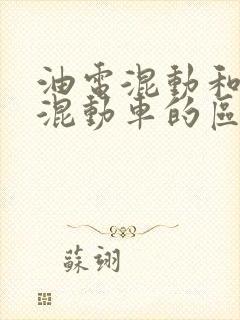 油電混動和
混動車的區
蘇翊